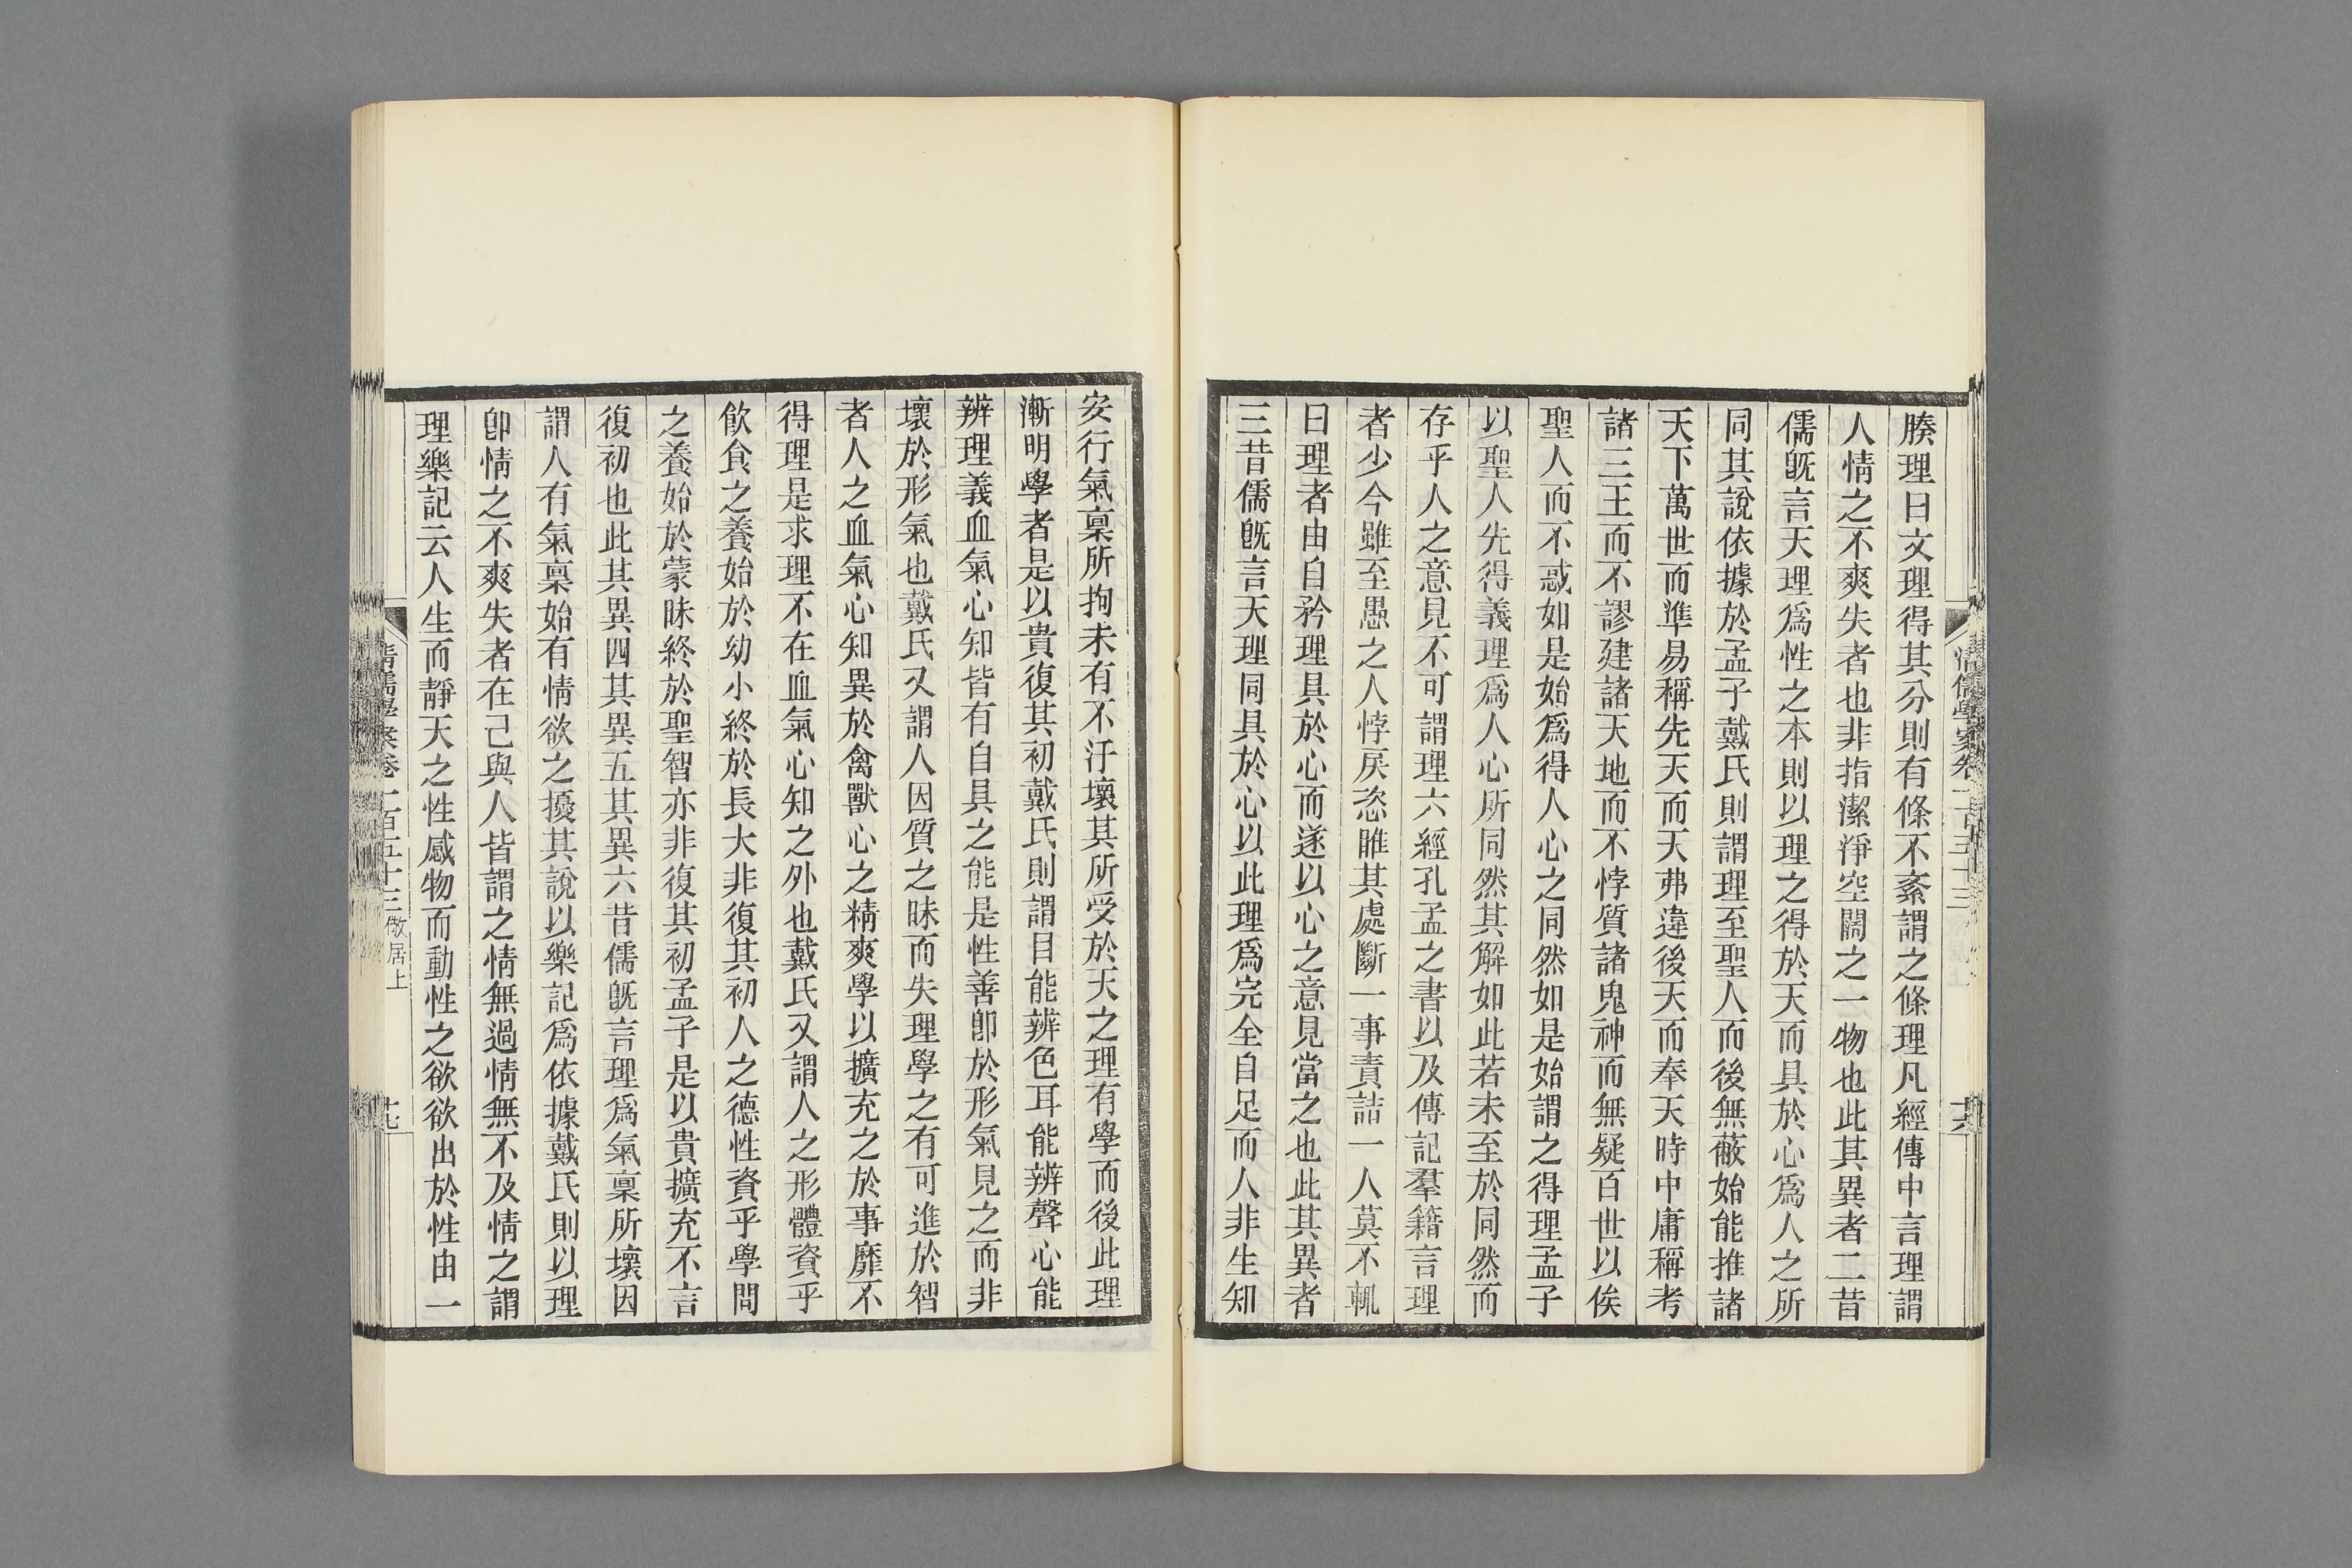 腠理曰文理得其分則有條不紊謂之條理凡經傳中言理謂
人情之不爽失者也非指潔淨空闊之一物也此其異者二昔
儒旣言天理爲性之本則以理之得於天而具於心爲人之所
同其說依據於孟子戴氏則謂理至聖人而後無蔽始能推諸
天下萬世而準易稱先天而天弗違後天而奉天時中庸稱考
諸三王而不謬建諸天地而不悖質諸鬼神而無疑百世以俟
聖人而不惑如是始爲得人心之同然如是始謂之得理孟子
以聖人先得義理爲人心所同然其解如此若未至於同然而
存乎人之意見不可謂理六經孔孟之書以及傳記羣籍言理
者少今雖至愚之人悖戾恣睢其處斷一事責詰一人莫不輒
曰理者由自矜理具於心而遂以心之意見當之也此其異者
三昔儒旣言天理同具於心以此理爲完全自足而人非生知
安行氣稟所拘未有不汙壞其所受於天之理有學而後此理
漸明學者是以貴復其初戴氏則謂目能辨色耳能辨聲心能
辨理義血氣心知皆有自具之能是性善卽於形氣見之而非
壞於形氣也戴氏又謂人因質之昧而失理學之有可進於智
者人之血氣心知異於禽獸心之精爽學以擴充之於事靡不
得理是求理不在血氣心知之外也戴氏又謂人之形體資乎
飮食之養始於幼小終於長大非復其初人之德性資乎學問
之養始於蒙昧終於聖智亦非復其初孟子是以貴擴充不言
復初也此其異四其異五其異六昔儒旣言理爲氣稟所壞因
謂人有氣稟始有情欲之擾其說以樂記爲依據戴氏則以理
卽情之不爽失者在己與人皆謂之情無過情無不及情之謂
理樂記云人生而靜天之性感物而動性之欲欲出於性由一
清儒學案卷二百五十三 儆居上
十七